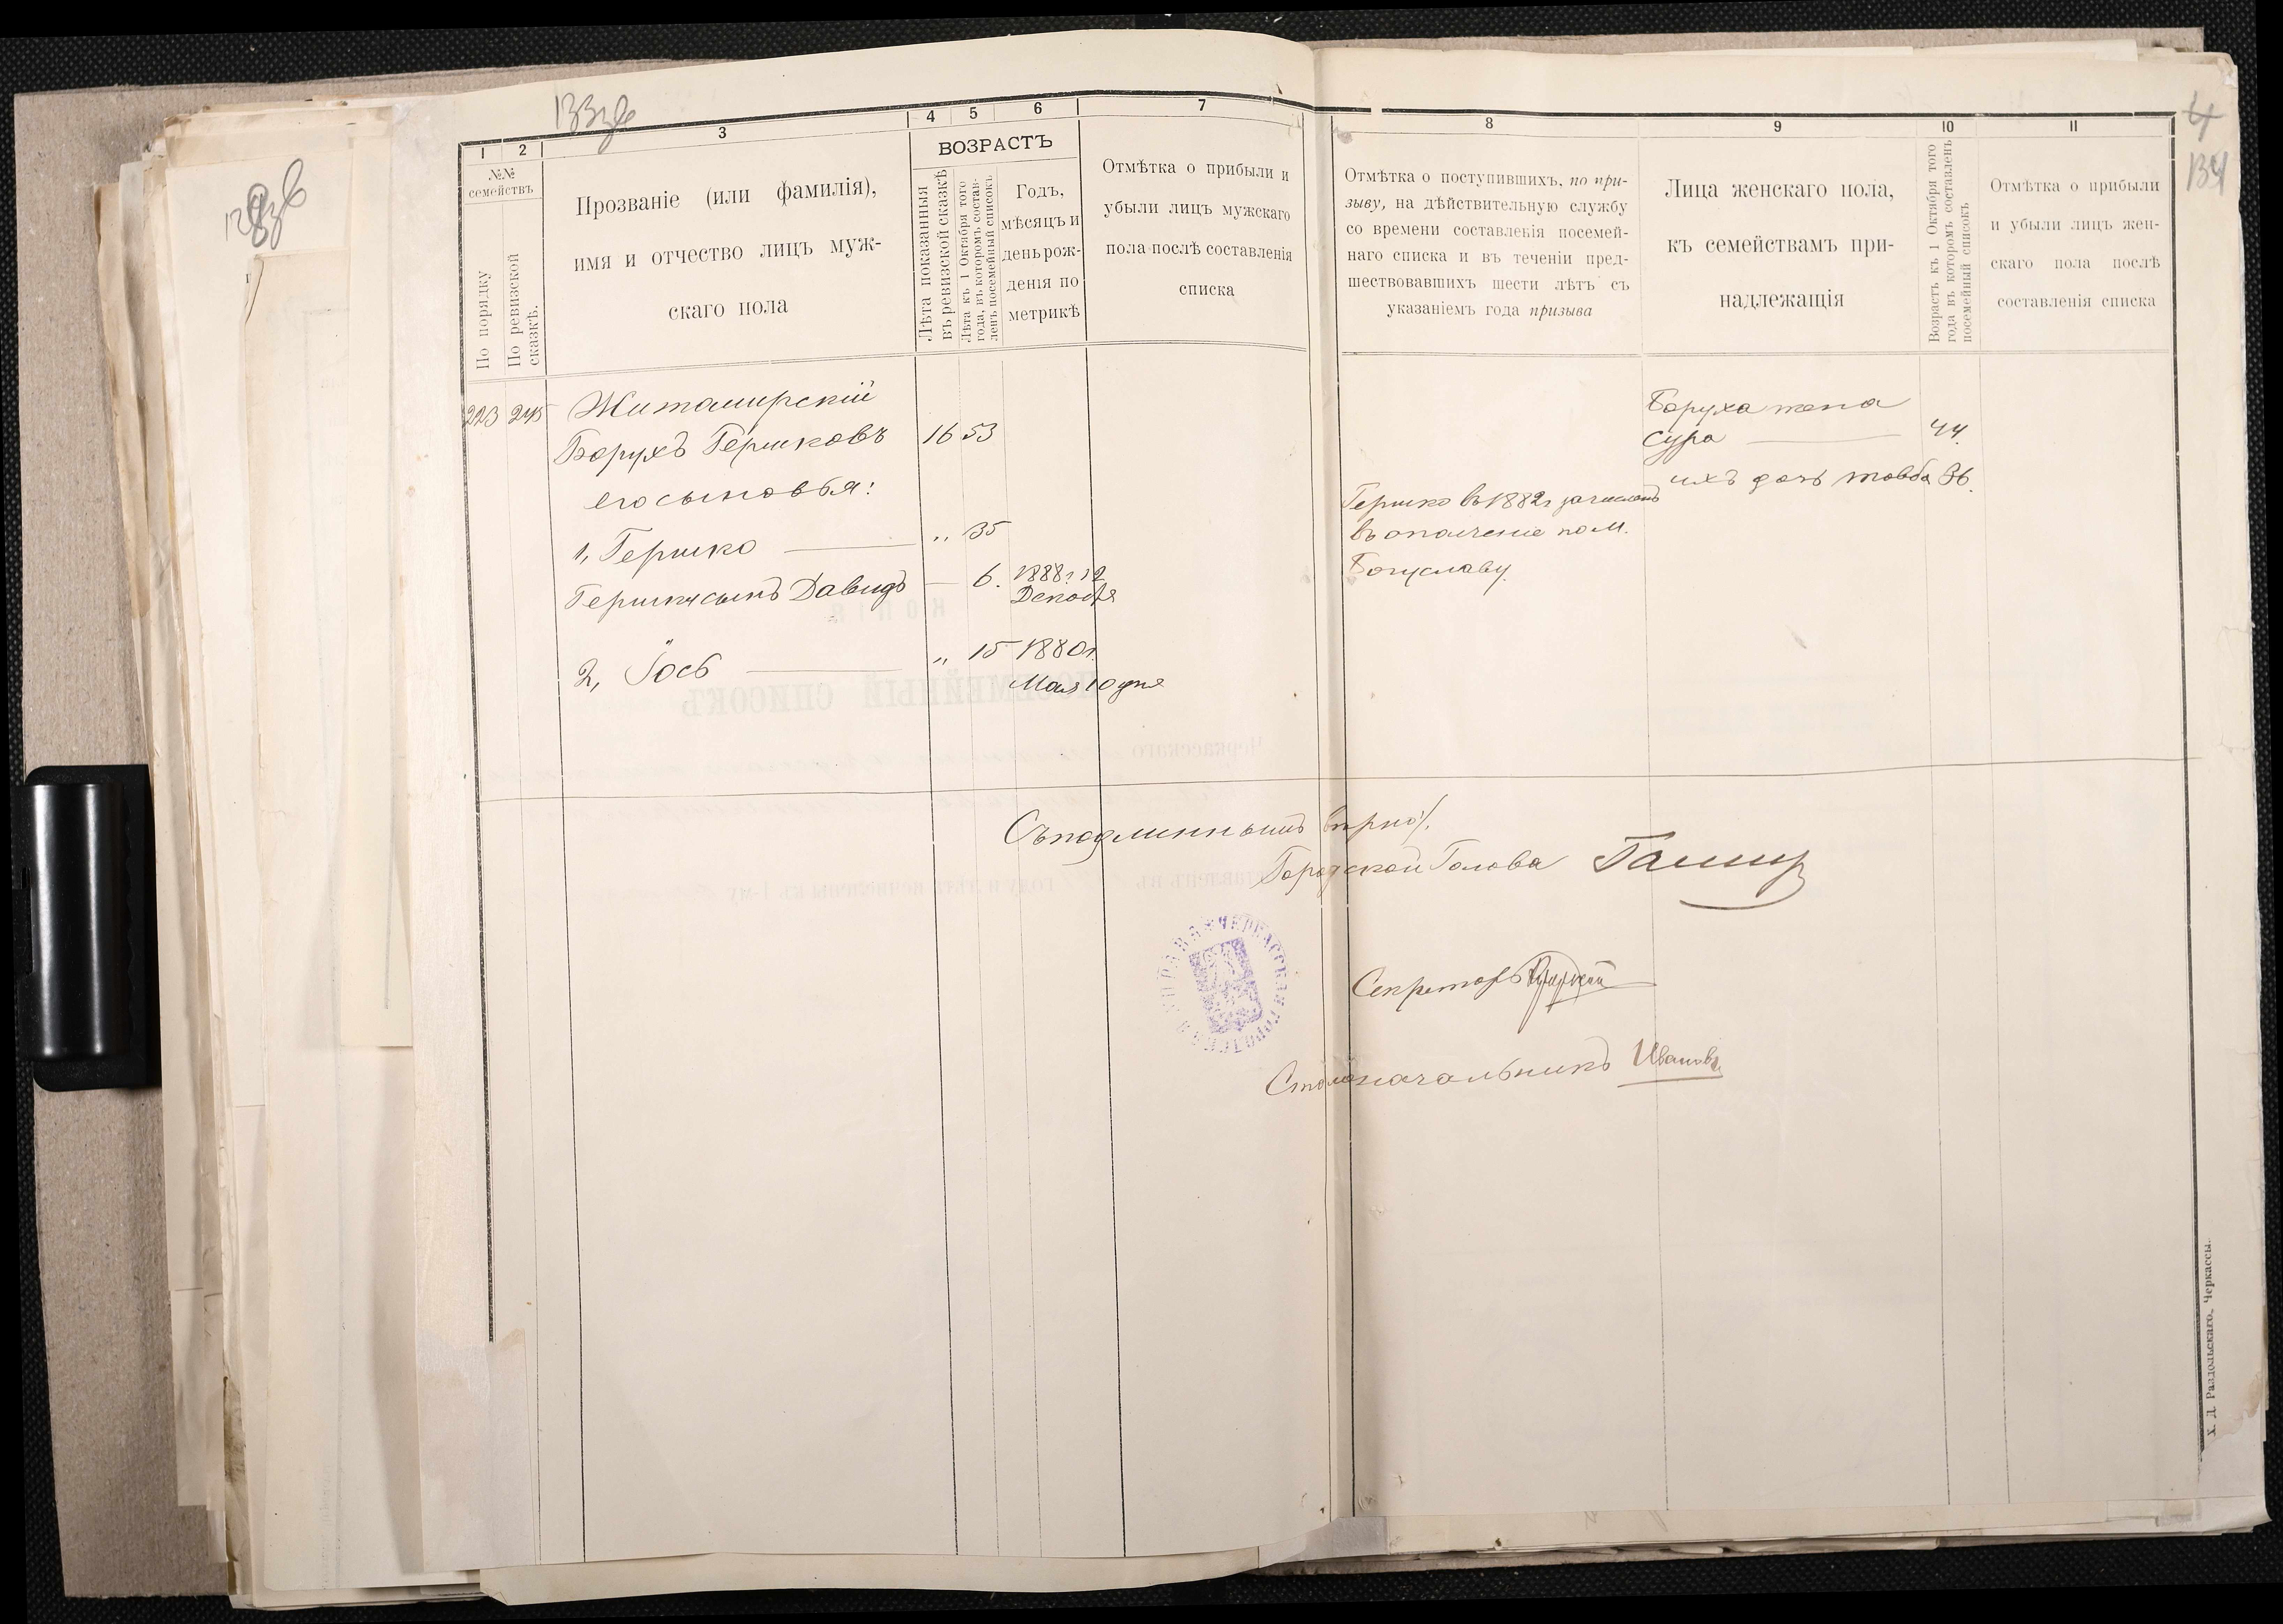 133зв
4
134
1
2
3
4
5
6
7
8
9
10
11
№№ семействъ
По порядку
По ревизской сказкѣ.
Прозваніе (или фамилія),
имя и отчество лицъ муж-
скаго пола
ВОЗРАСТЪ
Лѣта показанныя
въ ревизской сказкѣ
Лѣта къ 1 Октября того
года, въ которомъ состав-
ленъ посемейный списокъ
Годъ,
мѣсяцъ и
день рож-
денія по
метрикѣ
Отмѣтка о прибыли и
убыли лицъ мужскаго
пола послѣ составленія
списка
Отмѣтка о поступившихъ, по при-
зыву, на дѣйствительную службу
со времени составленія посемей-
наго списка и въ теченіи пред-
шествовавшихъ шести лѣтъ съ
указаніемъ года призыва
Лица женскаго пола,
къ семействамъ при-
надлежащія
Возрастъ къ 1 Октября того
года въ которомъ составленъ
посемейный списокъ
Отмѣтка о прибыли
и убыли лицъ жен-
скаго пола послѣ
составленія списка
223 245 Житомирскій
Борухъ Гершковъ 16 53
его сыновья:
1, Гершко — „ 35
Гершки сынъ Давидъ — 6. 1888 г. 12
Декабря
2, Іось — „ 15 1880 г.
Мая 10 дня
Гершко въ 1882 г зачисленъ
въ ополченіе по м.
Богуславу.
Боруха жена
Сура — 44.
ихъ дочь Товба 36.
Съ подлиннымъ вѣрно:
Городской Голова
Секретарь
Столоначальникъ Ивановъ
ЧЕРКАССКАЯ ГОРОДСКАЯ УПРАВА
Х. Д. Раздольскаго. Черкассы.